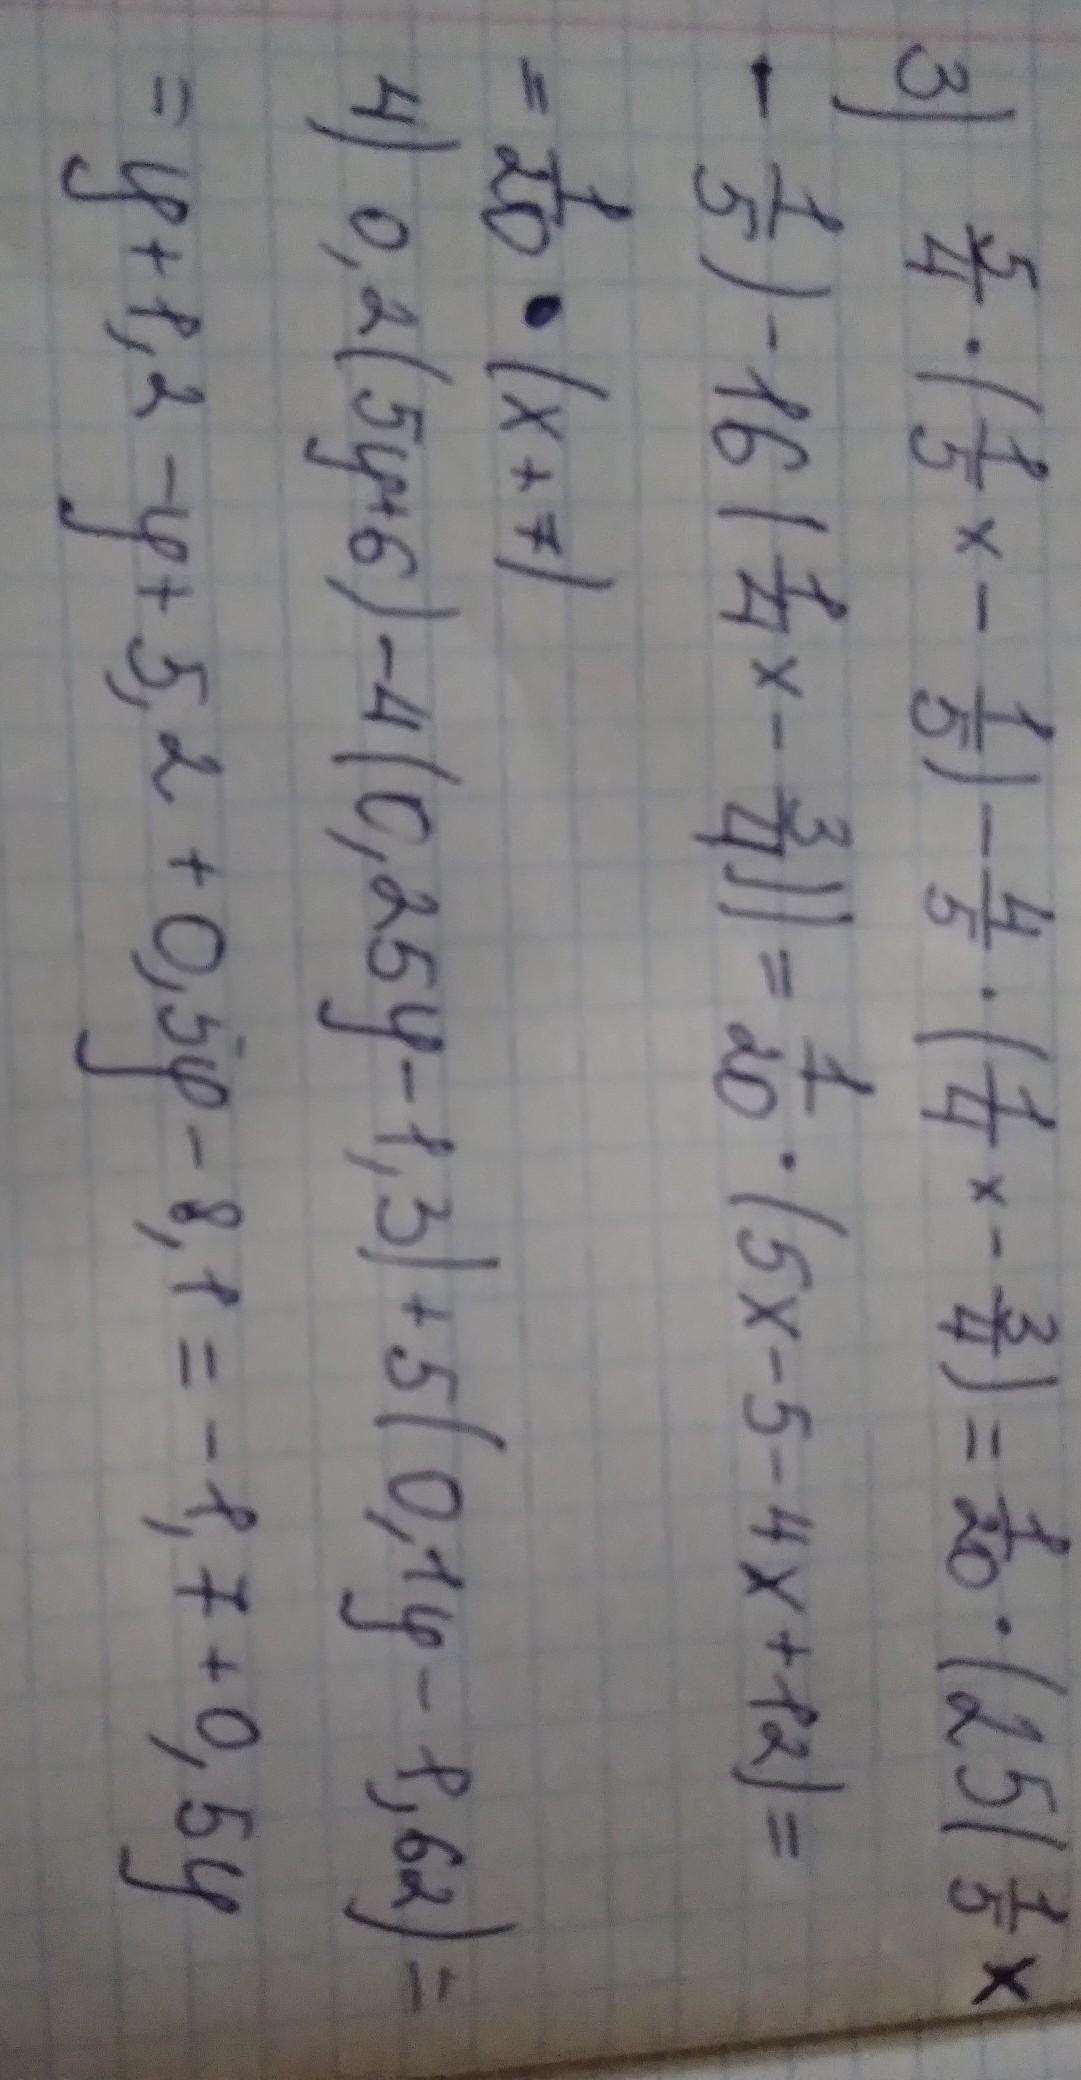 3) 5/4 · (1/5 x - 1/5) - 4/5 · (1/4 x - 3/4) = 1/20 · (25(1/5 x
- 1/5) - 16(1/4 x - 3/4)) = 1/20 · (5x - 5 - 4x + 12) =
= 1/20 · (x + 7)
4) 0,2(5y+6) - 4(0,25y - 1,3) + 5(0,1y - 1,62) =
= y + 1,2 - y + 5,2 + 0,5y - 8,1 = -1,7 + 0,5y